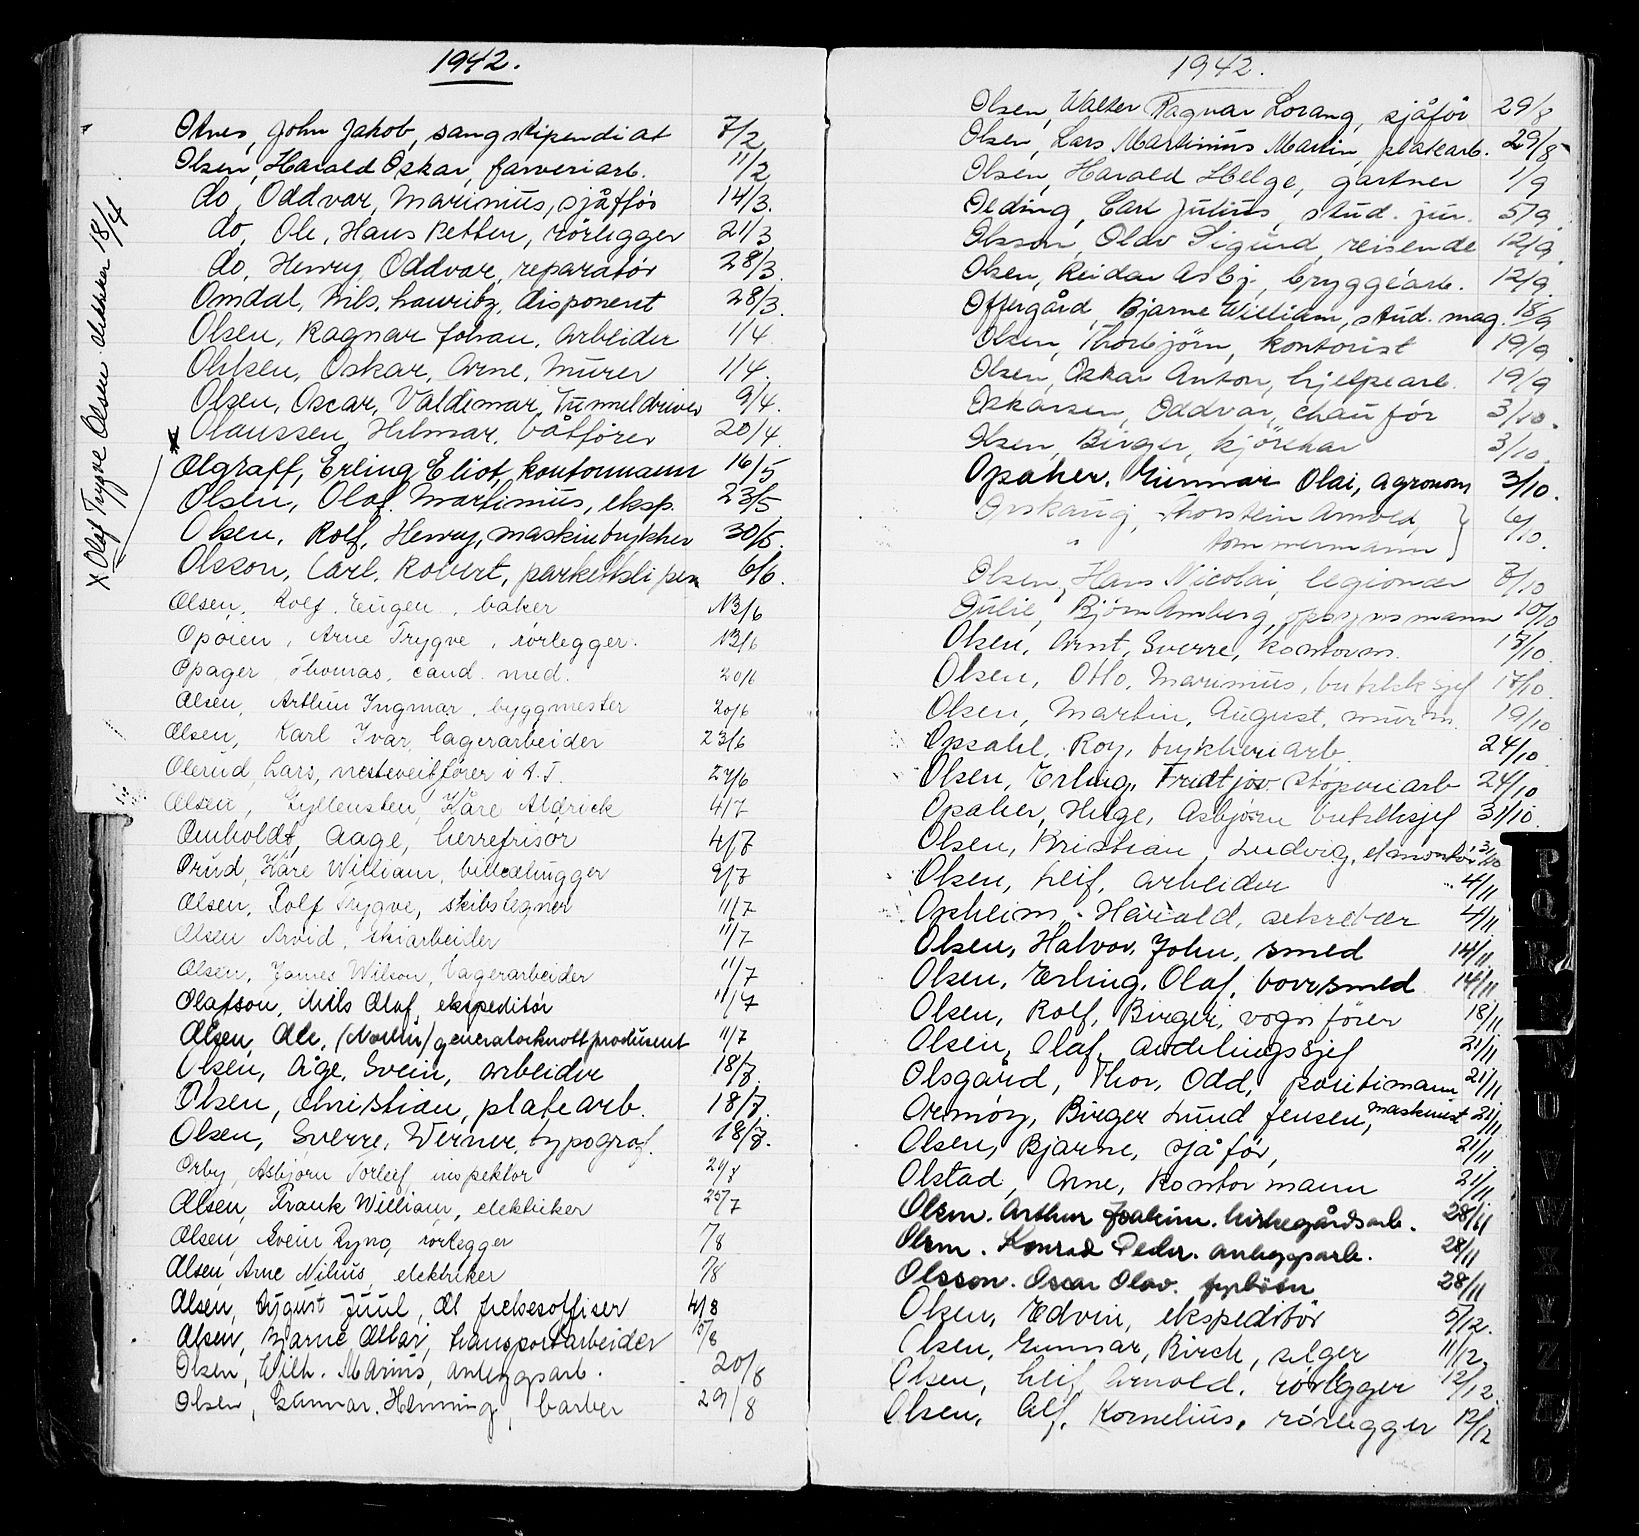 1942.
Otnes, John Jakob, sangstipendiat 7/2
Olsen, Harald Oskar, farveriarb. 11/2
do, Oddvar, Marinius, sjåffór 14/3.
do, Ole, Hans Petter, rörlegger 21/3
do, Henry, Oddvar, reparatör 28/3.
Omdal, Nils, Lauritz, disponent 28/3.
Olsen, Ragnar Johan, Arbeider 1/4
Ohlsen, Oskar, Arne, Murer 1/4.
Olsen, Oscar, Valdimar, Tunneldriver 9/4.
x Olaussen, Hilmar, båtförer 20/4.
Olgraff, Erling Eliot, kontormann 16/5
Olsen, Olaf. Martinius, eksp. 23/5
Olsen, Rolf, Henry, maskintrykker 30/5.
Olsson, Carl, Robert, parketsliper 6/6.
Olsen, Rolf. Eugen, baker 13/6
Opöien, Arne Trygve, rörlegger. 13/6
Opager, Thomas, cand. med. 20/6
Olsen, Arthur Ingmar, byggmester 20/6
Olsen, Karl Ivar, lagerarbeider 23/6
Olerud, Lars, nesteveitförer i A.T. 27/6
Olsen, Gyllensten, Kåre Aldrick 4/7
Omholdt, Aage, herrefrisör 4/7
Orud, Kåre William, billedhugger 9/7
Olsen, Rolf Trygve, skibstegner 11/7
Olsen Arvid, skiarbeider 11/7
Olsen, James Wilson, lagerarbeider 11/7
Olafson, Nils Olaf, ekspeditör 11/7
Olsen, Ole, (Martin) generatorknottprodusent 11/7
Olsen, Åge, Svein, arbeider 18/7
Olsen, Christian, platearb. 18/7.
Olsen, Sverre, Werner, typograf. 18/7.
Orby, Asbjörn Torleif, inspektör
Olsen, Frank William, elektriker 25/7
Olsen, Svein Ryno, rörlegger /8
Olsen, Arne Nilius, elektriker /8
Olsen, August Juul, Al frelsesoffiser 4/8
Olsen, Bjarne Ottar, transportarbeider 15/8
Olsen, Wilh. Marius, anleggsarb. 20/8
Olsen, Gunnar. Henning, barber 29/8
x Olaf Trygve Olsen 18/4.
1942.
Olsen, Walter Ragnar Lorang, sjåför 29/8
Olsen, Lars Martinius Martin, platearb. 29/8
Olsen, Harald Helge, gartner 1/9
Oeding, Carl Julius, stud. jur. 5/9
Olsson, Olav Sigurd, reisende 12/9
Olsen, Reidar Asbj., bryggearb. 12/9
Offergård, Bjarne William, stud. mag. 18/9
Olsen, Thorbjörn, kontorist 19/9
Olsen, Oskar Anton, hjelpearb. 19/9
Oskarsen, Oddvar, chauför 3/10.
Olsen, Birger, kjörekar 3/10.
Opaker, Gunnar Olai, Agronom 3/10.
Orskaug, Thorstein Arnold,
" tommermann } 6/10.
Olsen, Hans Nicolai, legionær 8/10
Oulie, Björn Amberg, oppsynsmann 10/10
Olsen, Arnt, Sverre, kontorm. 17/10.
Olsen, Otto, Marinius, butikksjef 17/10.
Olsen, Martin, August, murm. 19/10
Opsahl, Roy, trykkeriarb. 24/10.
Olsen, Erling, Fridtjov. stöperiarb 24/10
Opaker, Helge, Asbjörn butikksjef 31/10
Olsen, Kristian, Ludvig, elmontör 31/10
Olsen, Leif, arbeider 4/11
Opheim, Harald, sekretær 4/11
Olsen, Halvor, John, smed 14/11
Olsen, Erling, Olaf, borrsmed 14/11
Olsen, Rolf, Birger, vognförer 18/11
Olsen, Olaf, avdelingssjef 21/11
Olsgård, Thor, Odd, politimann 21/11
Ormöy, Birger Lund Jensen, maskinist 21/11
Olsen, Bjarne, sjåför, 21/11
Olstad, Arne, Kontormann 21/11
Olsen. Arthur Joakim. kirkegårdsarb. 28/11
Olsen. Konrad Peder. anleggsarb. 28/11
Olsson. Oscar Olav. 28/11
Olsen, Edvin, ekspeditör 5/12.
Olsen, Gunnar, Birch, selger 11/12
Olsen, Leif Arnold, rörlegger 12/12
Olsen, Alf, Kornelius, rörlegger 12/12
P
Q
R
S
T
U
V
W
X
Y
Z
Æ
Ö